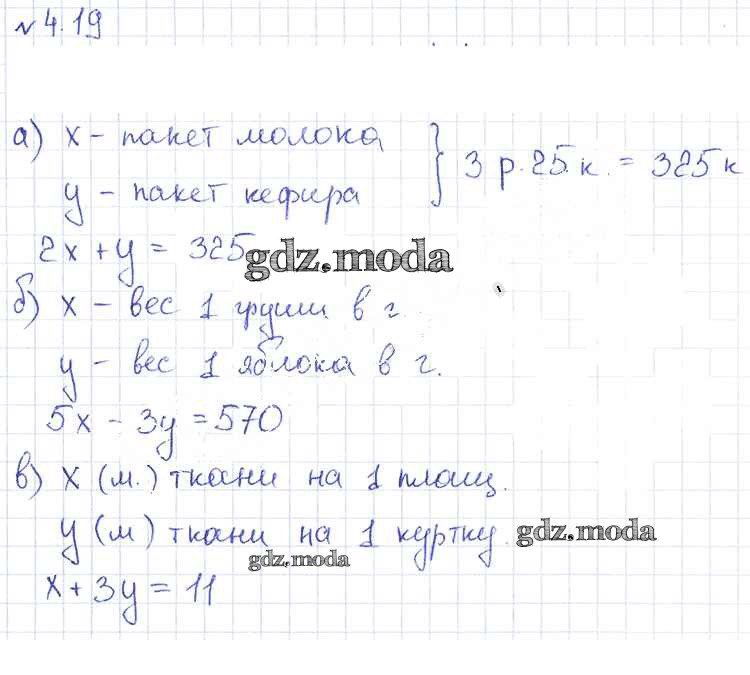 № 4.19
а) х – пакет молока
у – пакет кефира
} 3 р. 25 к. = 325 к
2х + у = 325
gdz.moda
б) х – вес 1 груши в г.
у – вес 1 яблока в г.
5х – 3у = 570
в) х (м.) ткани на 1 плащ.
у (м) ткани на 1 куртку.
gdz.moda
gdz.moda
х + 3у = 11